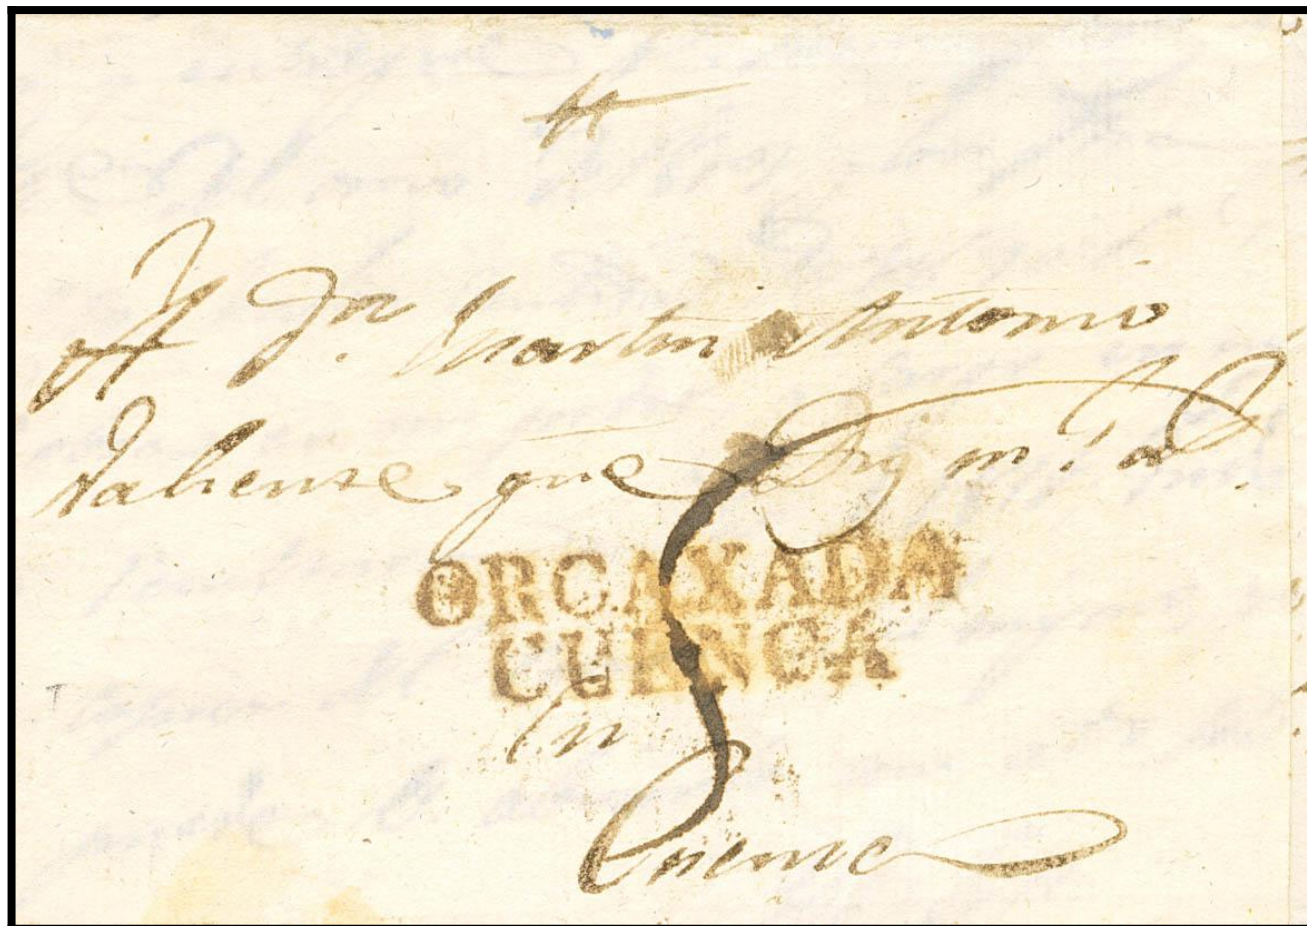 A Dn. Martin Antonio
Valiente que Dios m.s a.s
ORCAXADA
CUENCA
En
Cuenca